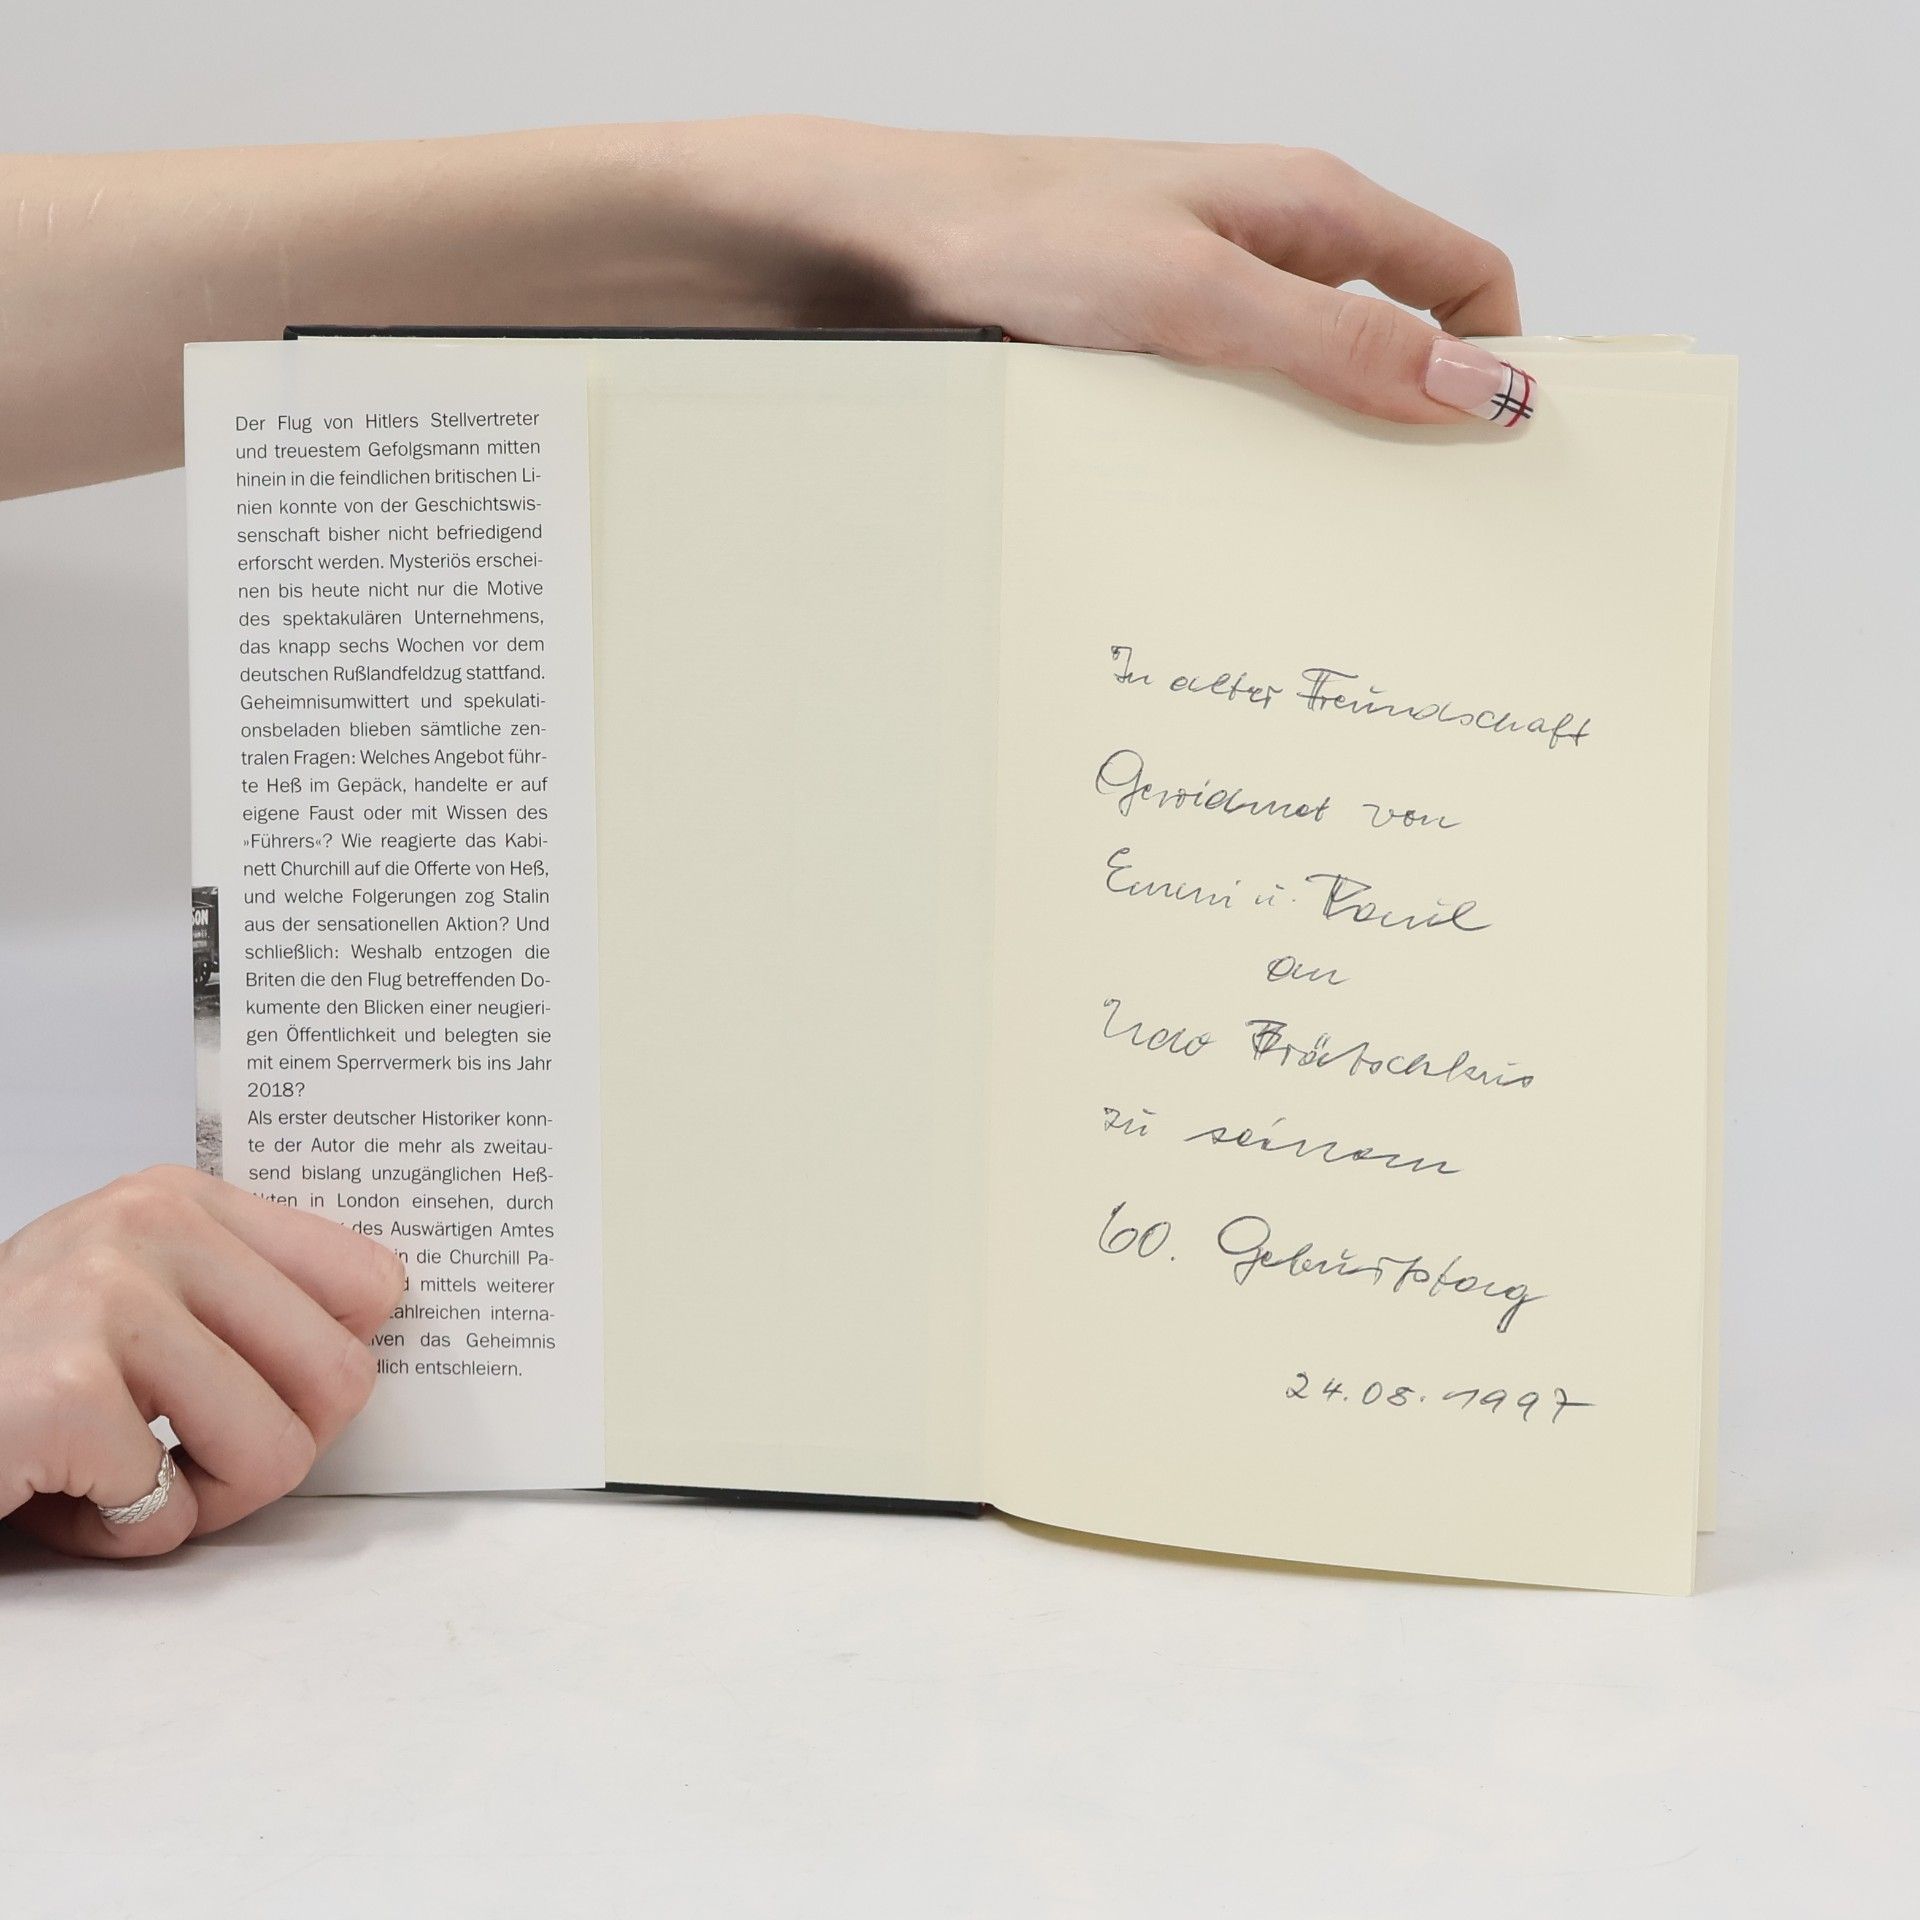 Der Flug von Hitlers Stellvertreter
und treuestem Gefolgsmann mitten
hinein in die feindlichen britischen Li-
nien konnte von der Geschichtswis-
senschaft bisher nicht befriedigend
erforscht werden. Mysteriös erschei-
nen bis heute nicht nur die Motive
des spektakulären Unternehmens,
das knapp sechs Wochen vor dem
deutschen Rußlandfeldzug stattfand.
Geheimnisumwittert und spekulati-
onsbeladen blieben sämtliche zen-
tralen Fragen: Welches Angebot führ-
te Heß im Gepäck, handelte er auf
eigene Faust oder mit Wissen des
»Führers«? Wie reagierte das Kabi-
nett Churchill auf die Offerte von Heß,
und welche Folgerungen zog Stalin
aus der sensationellen Aktion? Und
schließlich: Weshalb entzogen die
Briten die den Flug betreffenden Do-
kumente den Blicken einer neugieri-
gen Öffentlichkeit und belegten sie
mit einem Sperrvermerk bis ins Jahr
2018?
Als erster deutscher Historiker konn-
te der Autor die mehr als zweitau-
send bislang unzugänglichen Heß-
Akten in London einsehen, durch
des Auswärtigen Amtes
in die Churchill Pa-
mittels weiterer
zahlreichen interna-
das Geheimnis
entschleiern.
In alter Freundschaft
Gewidmet von
Emmi u. Paul
an
Udo
zu seinem
60. Geburtstag
24.08.1997